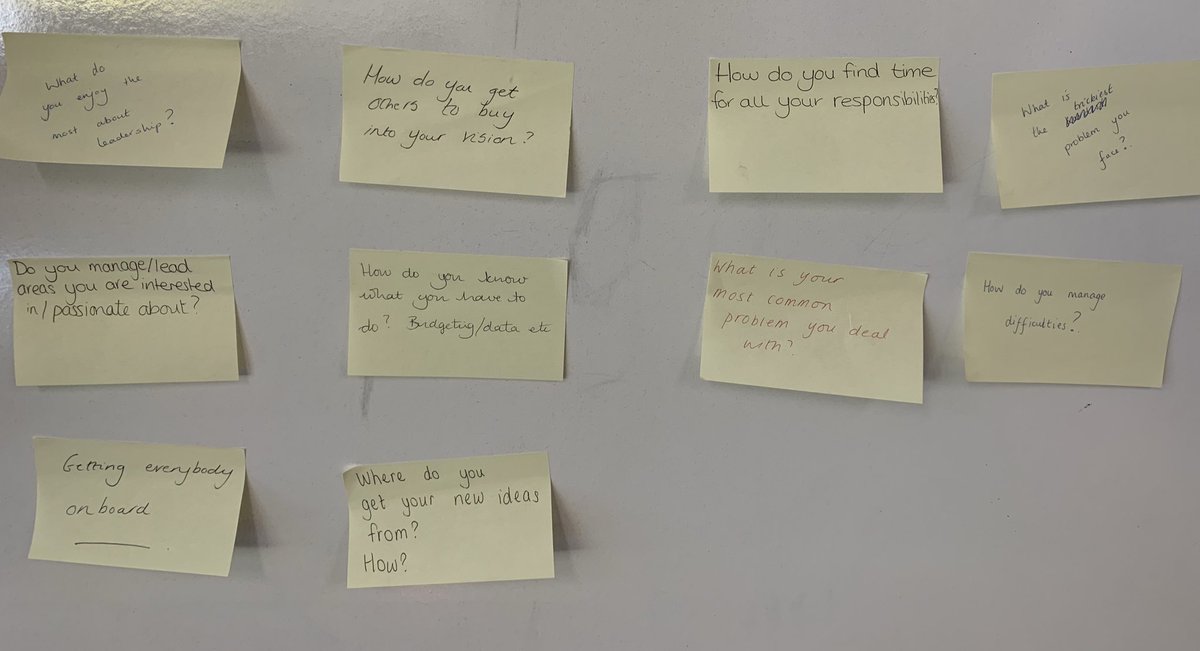 What do
you enjoy the
most about
leadership?
How do you get
others to buy
into your vision?
How do you find time
for all your responsibilities?
What is
the trickiest
problem you
face?
Do you manage/lead
areas you are interested
in/passionate about?
How do you know
what you have to
do? Budgeting/data etc
What is your
most common
problem you deal
with?
How do you manage
difficulties?
Getting everybody
onboard
Where do you
get your new ideas
from?
How?